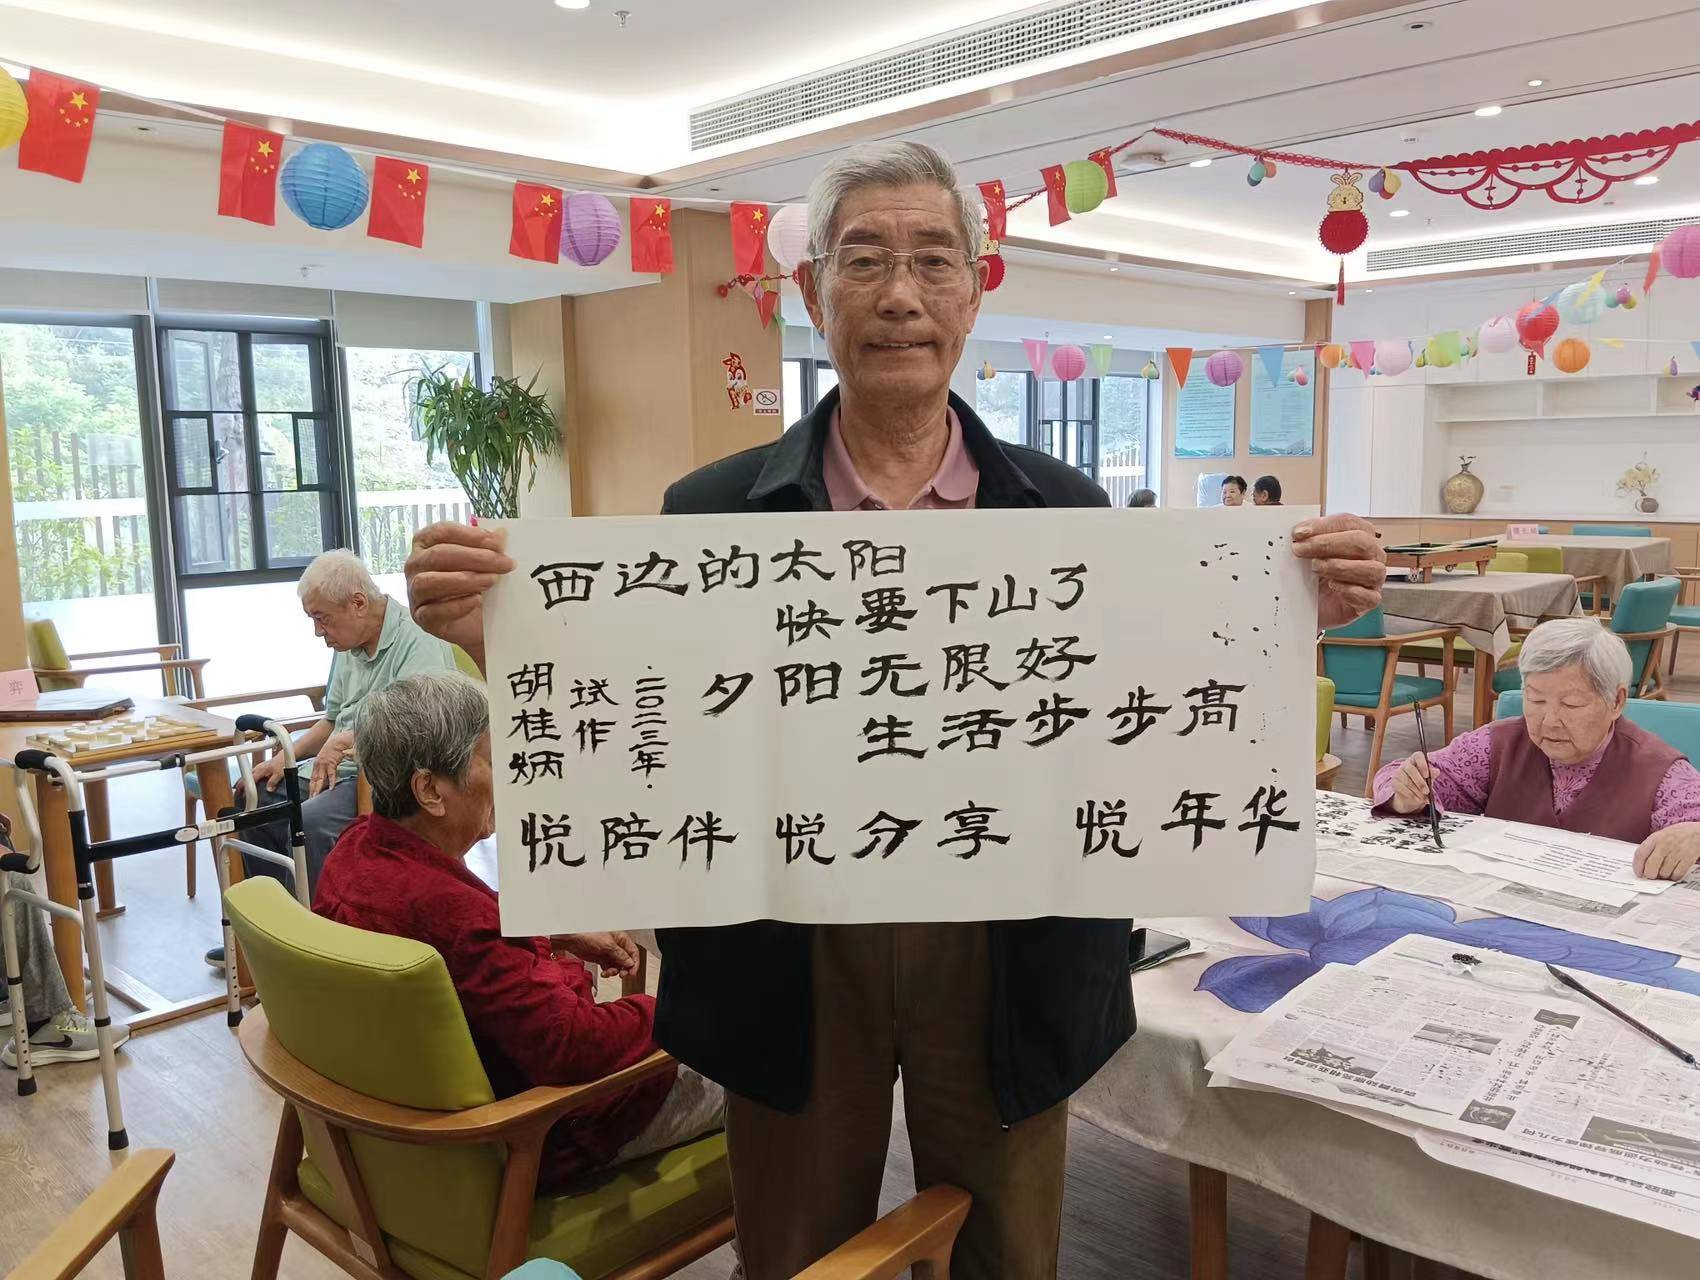 西边的太阳
快要下山了
夕阳无限好
生活步步高
二〇二三年.
试作
胡桂炳
悦陪伴 悦分享 悦年华
弈